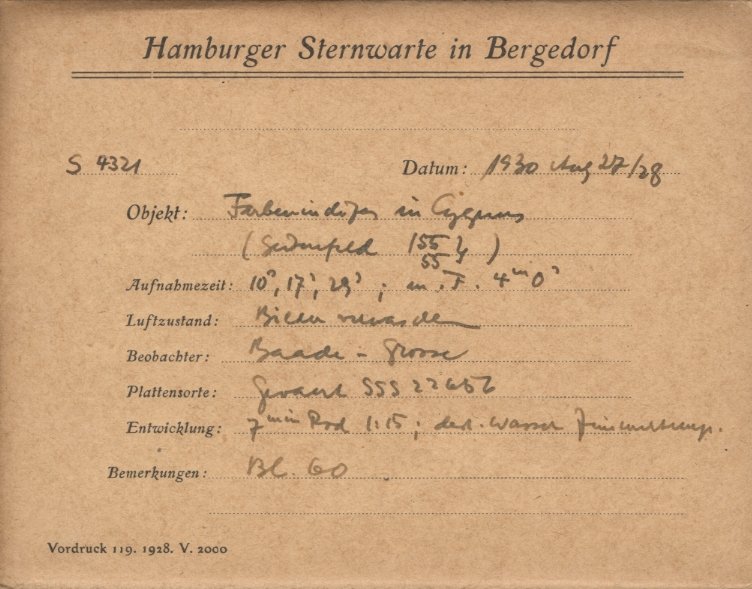 Hamburger Sternwarte in Bergedorf
S 4321 Datum: 1930 Aug 27/28
Objekt: Farbenindizes in Cygnus
155
55
Aufnahmezeit: 10ˢ, 17ˢ, 29ˢ; m. F. 4ᵐ0ˢ
Luftzustand: Bilder
Beobachter: Baade - Grosse
Plattensorte: Gevaert SSS 22656
Entwicklung: 7ᵐⁱⁿ Rod 1:15; dest. Wasser Zimmertemp.
Bemerkungen: Bl. 60
Vordruck 119. 1928. V. 2000